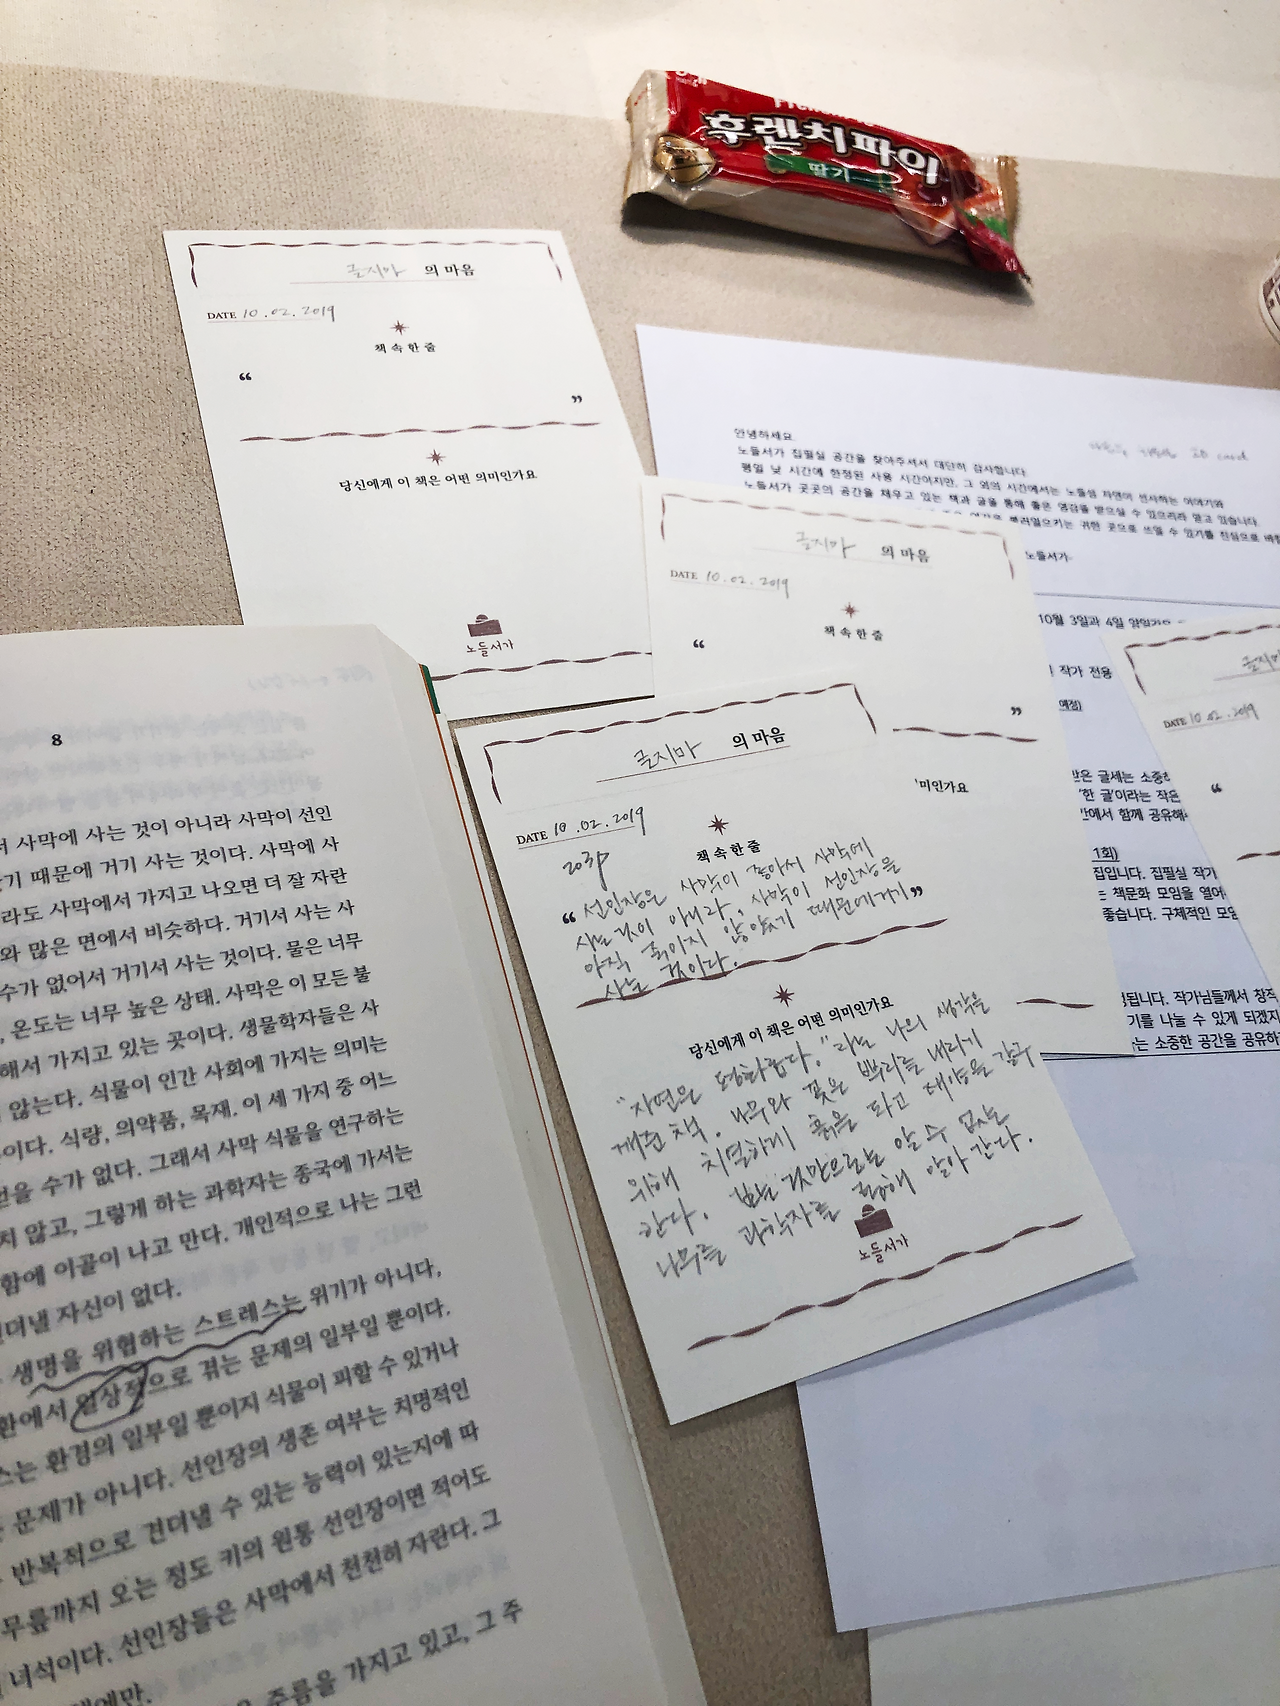 후렌치파이
딸기
글지마 의 마음
DATE 10.02.2019
책 속 한 줄
“
”
당신에게 이 책은 어떤 의미인가요
노들서가
안녕하세요.
노들서가 집필실 공간을 찾아주셔서 대단히 감사합니다.
평일 낮 시간에 한정된 사용 시간이지만, 그 외의 시간에서는 노들섬 자연이 선사하는 이야기와
노들서가 곳곳의 공간을 채우고 있는 책과 글을 통해 좋은 영감을 받으실 수 있으리라 믿고 있습니다.
귀한 곳으로 쓰일 수 있기를 진심으로
노들서가
10월 3일과 4일 양일간
작가 전용
예정)
글세는
'한 글'이라는 작은
함께
1회)
집입니다. 집필실 작가
책문화 모임을 열어
좋습니다. 구체적인 모임
됩니다. 작가님들께서 창작
기를 나눌 수 있게 되겠지
는 소중한 공간을 공유하
글지마 의 마음
DATE 10.02.2019
책 속 한 줄
“
”
미인가요
글지마
DATE 10.02.2019
“
글지마 의 마음
DATE 10.02.2019
책 속 한 줄
203p
“ 선인장은 사막이 좋아서 사막에
사는 것이 아니라, 사막이 선인장을
아직 죽이지 않았기 때문에 거기 ”
사는 것이다.
당신에게 이 책은 어떤 의미인가요
"자연은 평화롭다."라는 나의 생각을
깨준 책. 나무와 꽃은 뿌리를 내리기
위해 치열하게 흙을 파고 태양을 갈구
한다. 보는 것만으로는 알 수 없는
나무를 과학자를 통해 알아 간다.
노들서가
8
서 사막에 사는 것이 아니라 사막이 선인
기 때문에 거기 사는 것이다. 사막에 사
라도 사막에서 가지고 나오면 더 잘 자란
와 많은 면에서 비슷하다. 거기서 사는 사
수가 없어서 거기서 사는 것이다. 물은 너무
, 온도는 너무 높은 상태. 사막은 이 모든 불
해서 가지고 있는 곳이다. 생물학자들은 사
않는다. 식물이 인간 사회에 가지는 의미는
이다. 식량, 의약품, 목재. 이 세 가지 중 어느
얻을 수가 없다. 그래서 사막 식물을 연구하는
지 않고, 그렇게 하는 과학자는 종국에 가서는
함에 이골이 나고 만다. 개인적으로 나는 그런
견뎌낼 자신이 없다.
생명을 위협하는 스트레스는 위기가 아니다,
환에서 일상적으로 겪는 문제의 일부일 뿐이다.
스는 환경의 일부일 뿐이지 식물이 피할 수 있거나
문제가 아니다. 선인장의 생존 여부는 치명적인
반복적으로 견뎌낼 수 있는 능력이 있는지에 따
무릎까지 오는 정도 키의 원통 선인장이면 적어도
녀석이다. 선인장들은 사막에서 천천히 자란다. 그
때에만.
주름을 가지고 있고, 그 주